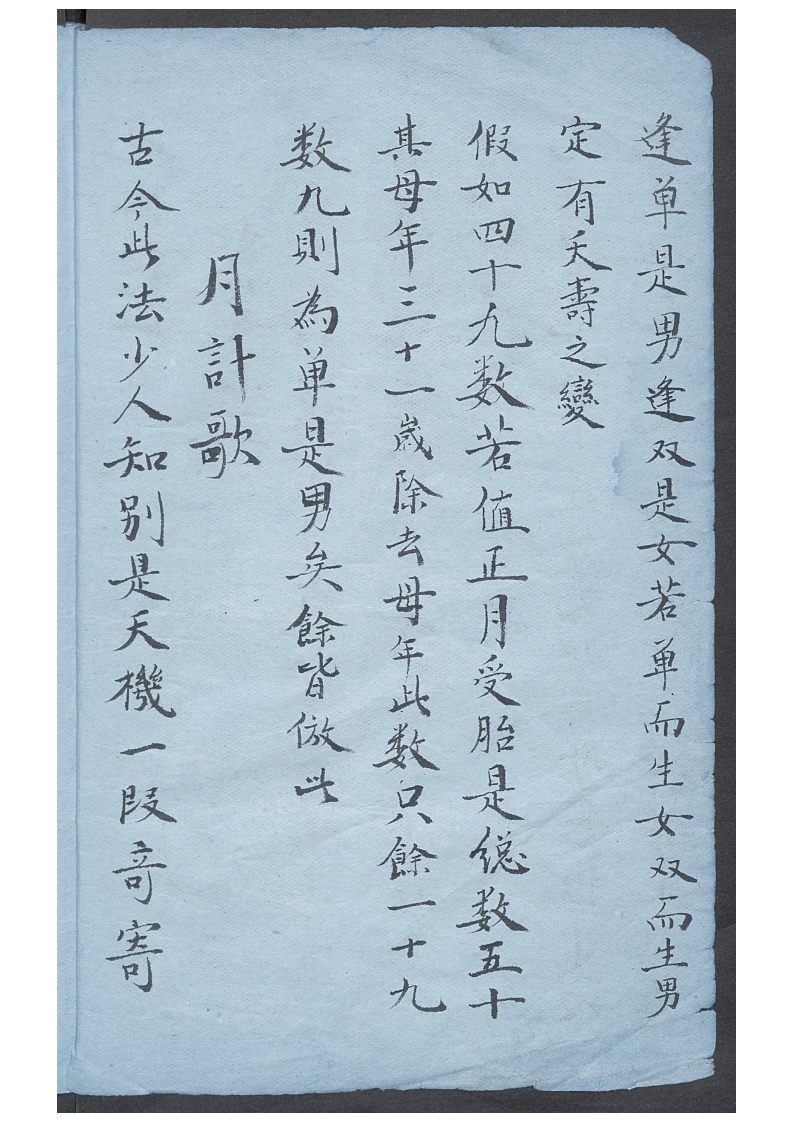 逢单是男逢双是女若单而生女双而生男
定有夭壽之變
假如四十九数若值正月受胎是總数五十
其母年三十一歲除去母年此数只餘一十九
数九則為单是男矣餘皆倣此
月計歌
古今此法少人知别是天機一段奇寄